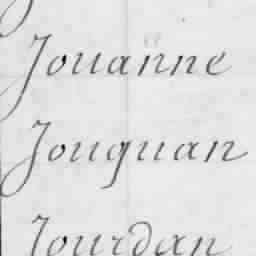 Jouanne
Jouquan
Jourdan